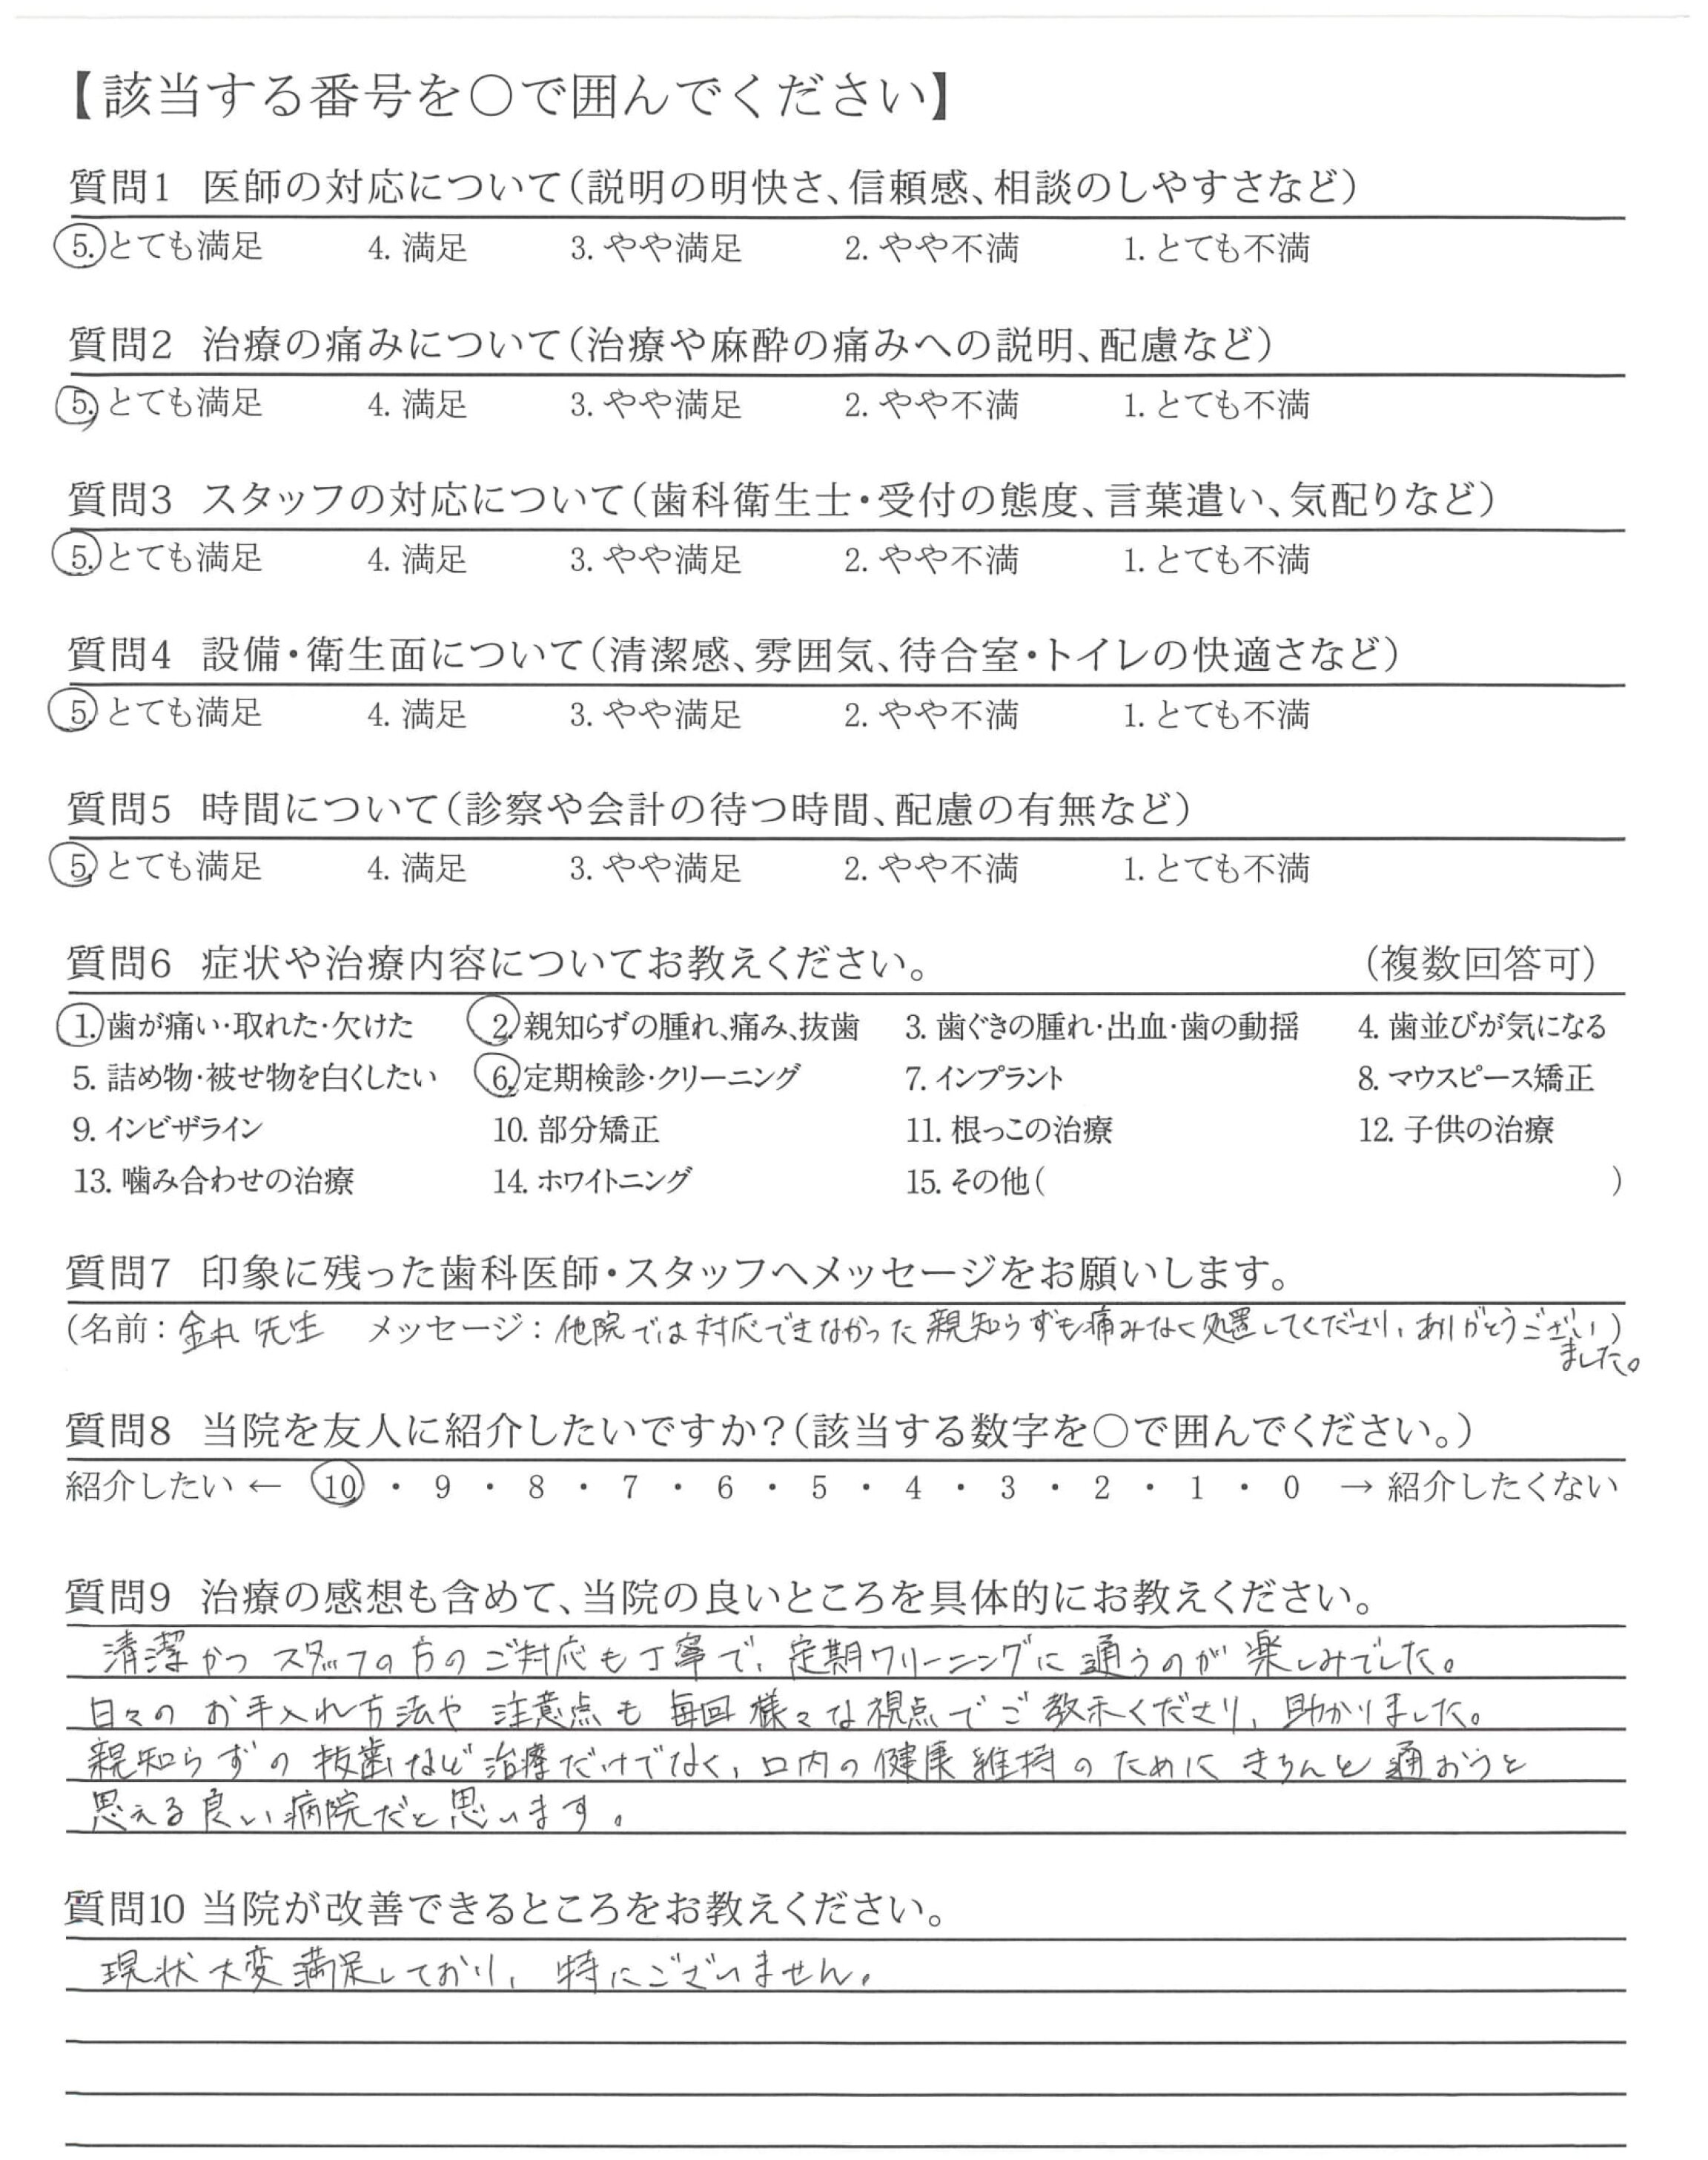 【該当する番号を〇で囲んでください】
質問1 医師の対応について(説明の明快さ、信頼感、相談のしやすさなど)
5. とても満足 4. 満足 3. やや満足 2. やや不満 1. とても不満
質問2 治療の痛みについて(治療や麻酔の痛みへの説明、配慮など)
5. とても満足 4. 満足 3. やや満足 2. やや不満 1. とても不満
質問3 スタッフの対応について(歯科衛生士・受付の態度、言葉遣い、気配りなど)
5. とても満足 4. 満足 3. やや満足 2. やや不満 1. とても不満
質問4 設備・衛生面について(清潔感、雰囲気、待合室・トイレの快適さなど)
5. とても満足 4. 満足 3. やや満足 2. やや不満 1. とても不満
質問5 時間について(診察や会計の待つ時間、配慮の有無など)
5. とても満足 4. 満足 3. やや満足 2. やや不満 1. とても不満
質問6 症状や治療内容についてお教えください。 (複数回答可)
1. 歯が痛い・取れた・欠けた 2. 親知らずの腫れ、痛み、抜歯 3. 歯ぐきの腫れ・出血・歯の動揺 4. 歯並びが気になる
5. 詰め物・被せ物を白くしたい 6. 定期検診・クリーニング 7. インプラント 8. マウスピース矯正
9. インビザライン 10. 部分矯正 11. 根っこの治療 12. 子供の治療
13. 噛み合わせの治療 14. ホワイトニング 15. その他( )
質問7 印象に残った歯科医師・スタッフへメッセージをお願いします。
(名前: 先生 メッセージ: 他院では対応できなかった親知らずも痛みなく処置してくださり、ありがとうござい)
ました。
質問8 当院を友人に紹介したいですか?(該当する数字を〇で囲んでください。)
紹介したい ← 10 ・ 9 ・ 8 ・ 7 ・ 6 ・ 5 ・ 4 ・ 3 ・ 2 ・ 1 ・ 0 → 紹介したくない
質問9 治療の感想も含めて、当院の良いところを具体的にお教えください。
清潔かつスタッフの方のご対応も丁寧で、定期クリーニングに通うのが楽しみでした。
日々のお手入れ方法や注意点も毎回様々な視点でご教示くださり、助かりました。
親知らずの抜歯など治療だけでなく、口内の健康維持のためにきちんと通おうと
思える良い病院だと思います。
質問10 当院が改善できるところをお教えください。
現状大変満足しており、特にございません。